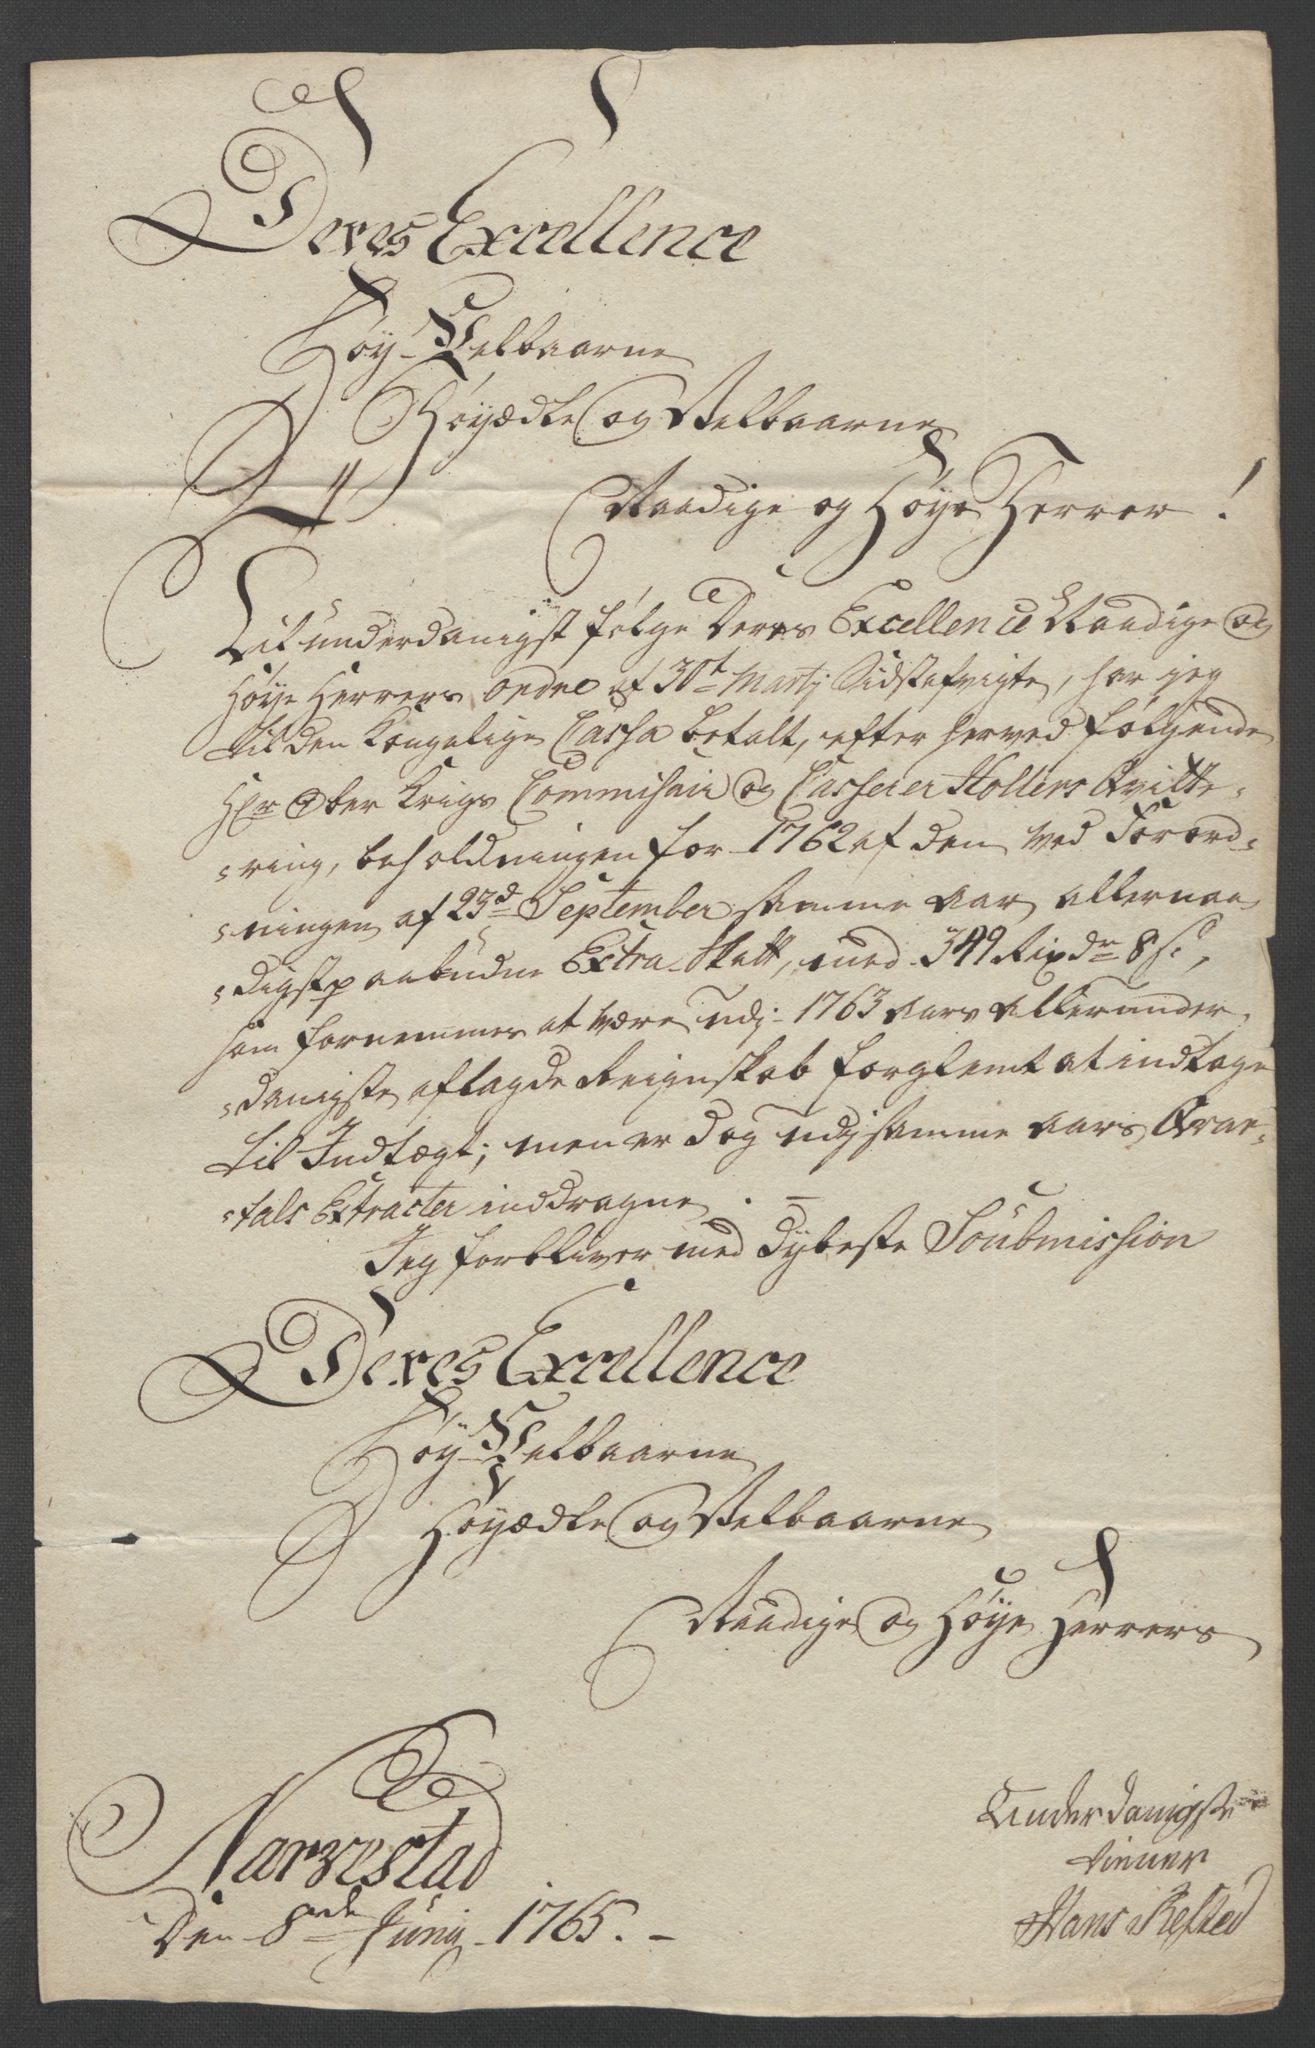 Deres Excellence
Høy-Velbaarne
Høyædle og Velbaarne
Naadige og Høye Herrer!
Til underdanigst følge Deres Excellence Naadige og
Høye Herrers ordre af 30te Martj Sidstafvigte, har jeg
til den Kongelige Cassa betalt, efter herved følgende
Hr Ober Krigs Commissair og Casserer Holters Qvitte-
-ring, beholdningen for 1762 af den ved Forord-
-ningen af 23d September samme Aar allernaa-
-digst paabudne Extra-Skatt, med 349 Rixdr 8 s,
som fornemmes at være udj 1763 Aars Allerunder-
-danigste aflagde Reignskab forglemt at indtage
til Indtægt; men er dog udj samme Aars Qvar-
-tals Extracter inddragne. -
Jeg forbliver med dybeste Soubmission
Deres Excellence
Høy-Velbaarne
Høyædle og Velbaarne
Naadige og Høye Herrers
Narvestad
Den 8de Junij 1765. -
Underdanigste
tienner
Hans